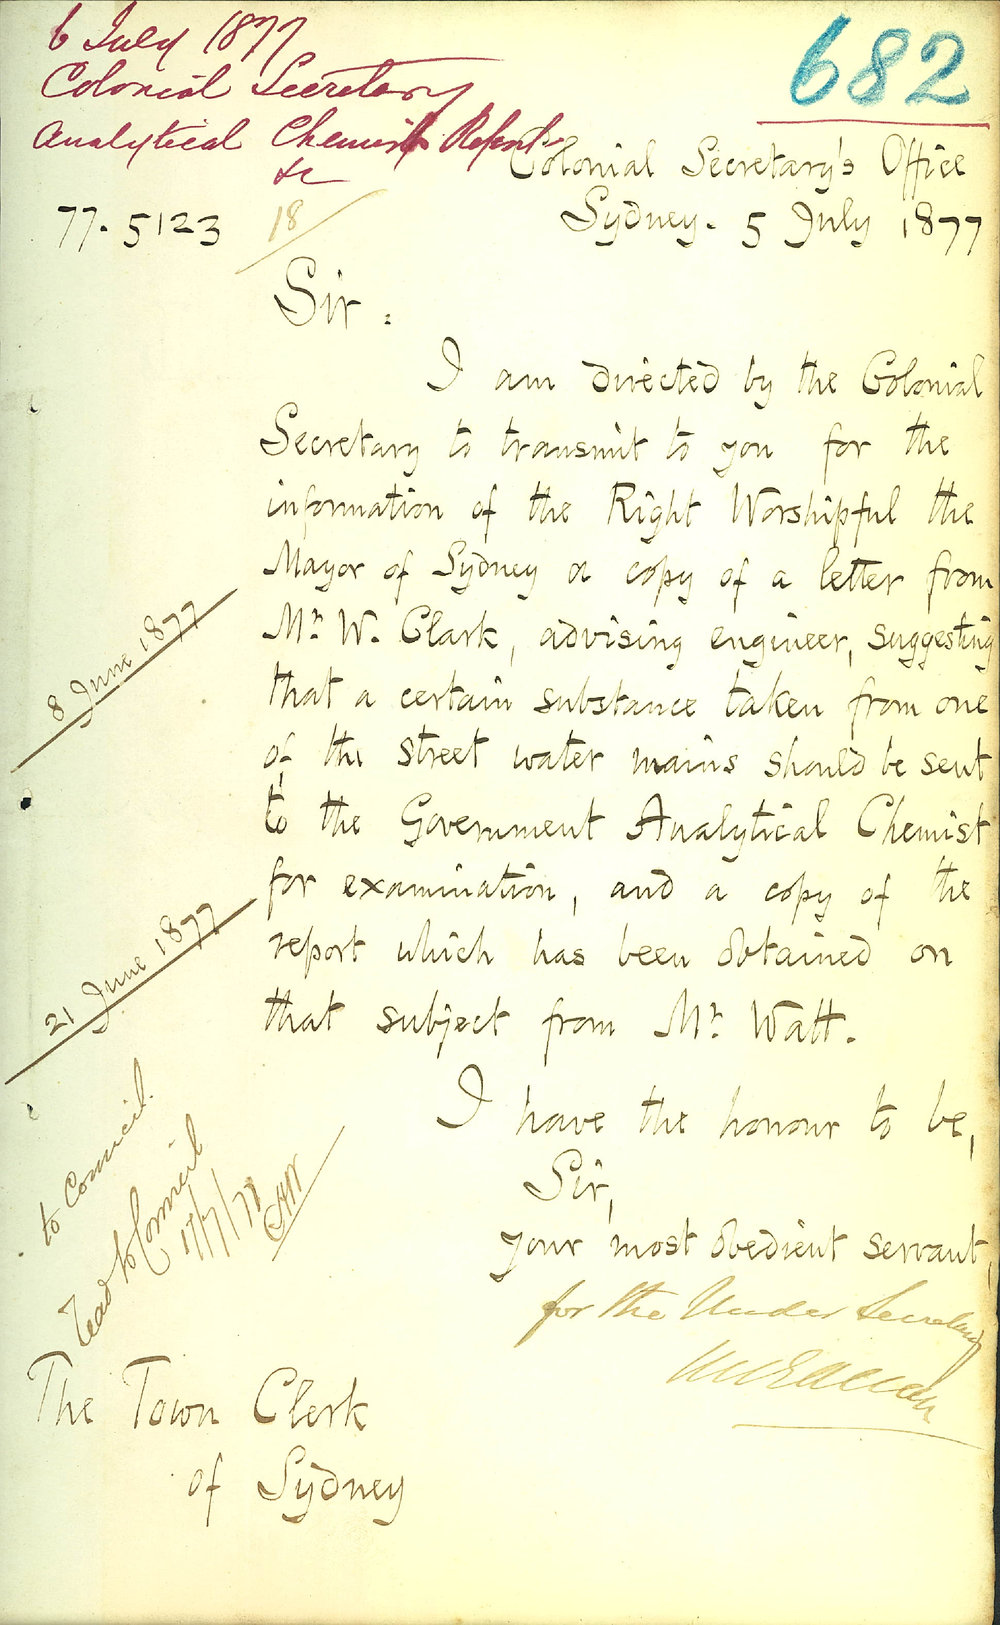 6 July 1877
Colonial Secretary
Analytical Chemist Report
&c
682
77. 5123
18
Colonial Secretary's Office
Sydney. 5 July 1877
Sir:
I am directed by the Colonial
Secretary to transmit to you for the
information of the Right Worshipful the
Mayor of Sydney a copy of a letter from
Mr. W. Clark, advising engineer, suggesting
that a certain substance taken from one
of the street water mains should be sent
to the Government Analytical Chemist
for examination, and a copy of the
report which has been obtained on
that subject from Mr. Watt.
8 June 1877
21 June 1877
I have the honour to be,
Sir,
your most obedient servant,
for the Under Secretary
to Council.
Read to Council
17/7/77
The Town Clerk
of Sydney